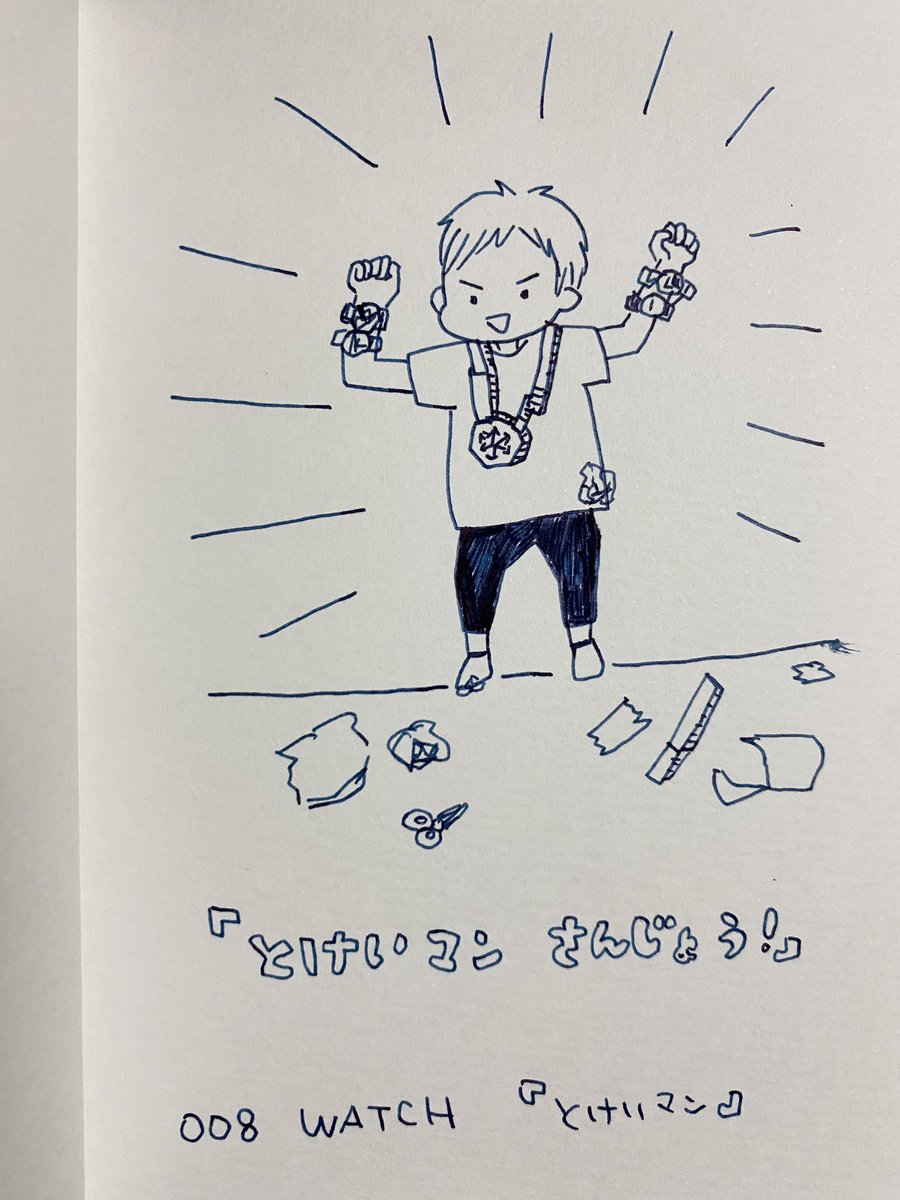 『とけいマン さんじょう!』
008 WATCH 『とけいマン』